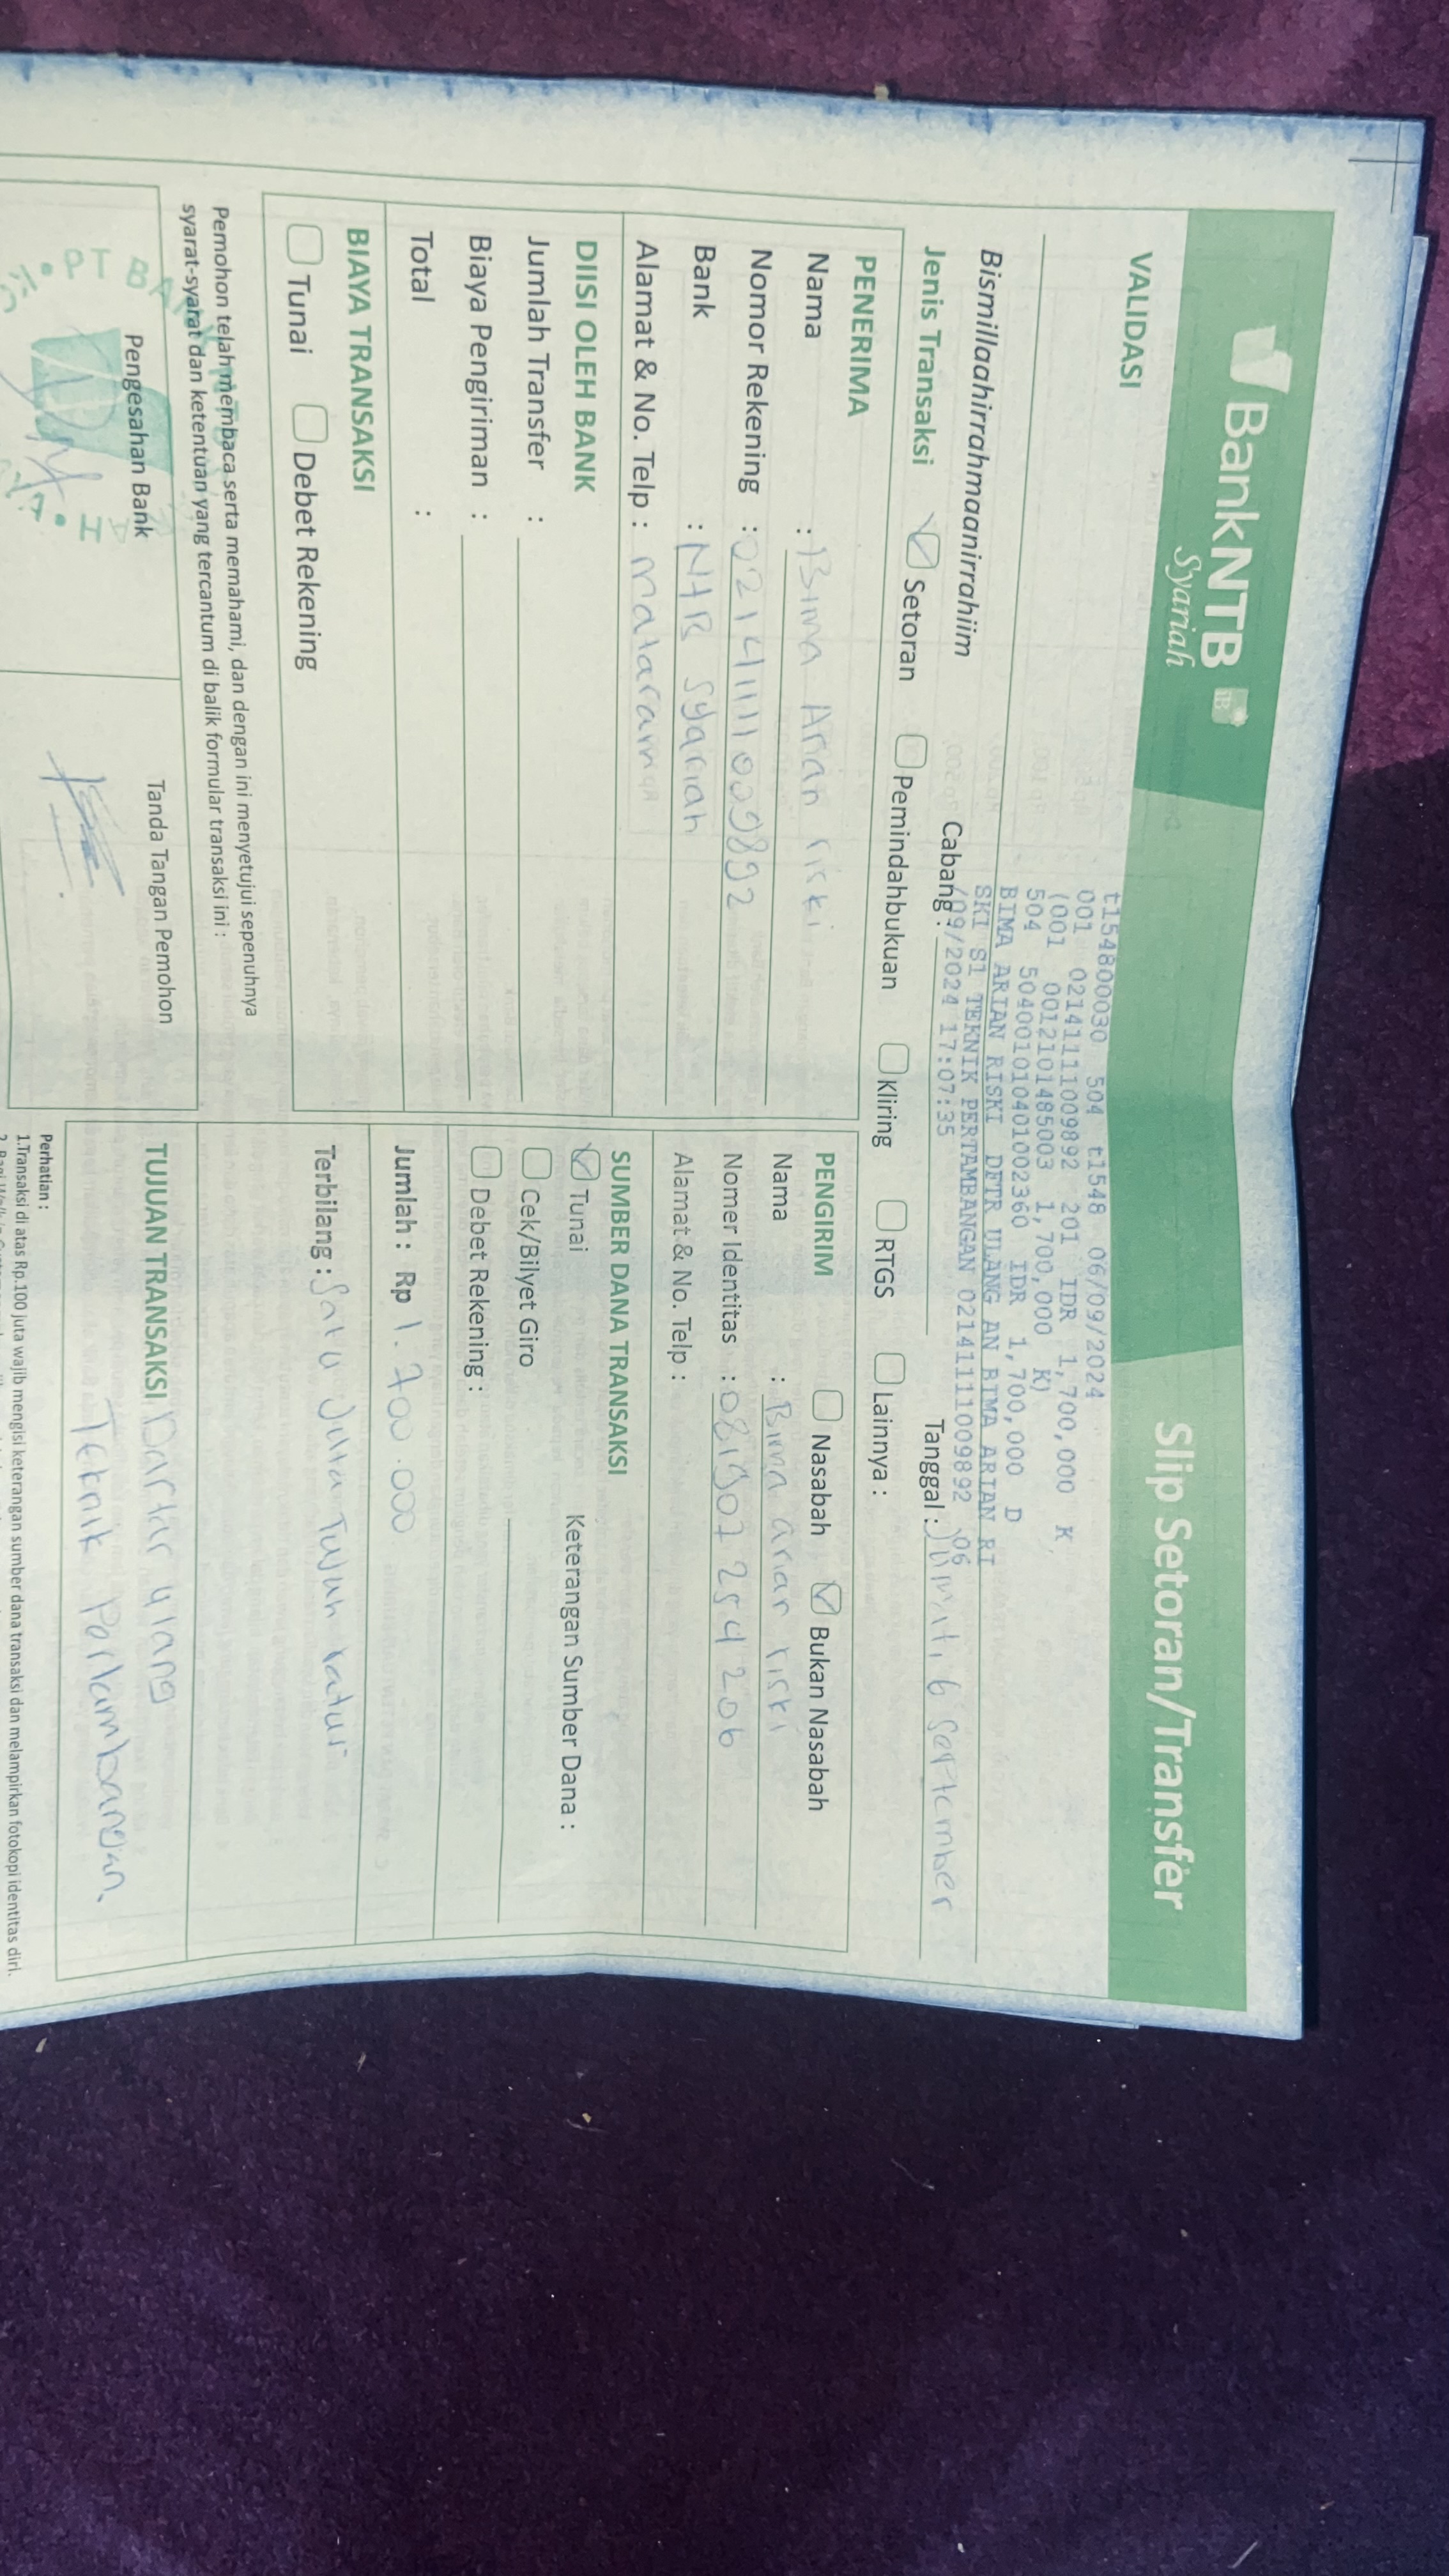 BankNTB
Syariah
Slip Setoran/Transfer
VALIDASI
t154800030 504 t1548 06/09/2024
001 02141111009892 201 IDR 1,700,000 K
(001 0012101485003 1,700,000 K)
504 504001010401002360 IDR 1,700,000 D
BIMA ARIAN RISKI DFTR ULANG AN BIMA ARIAN RI
SKI S1 TEKNIK PERTAMBANGAN 0214111100 9892 06
/09/2024 17:07:35
Bismillaahirrahmaanirrahiim
Cabang :
Tanggal : 6 September
Jenis Transaksi
Setoran
Pemindahbukuan
Kliring
RTGS
Lainnya :
PENERIMA
Nama : Bima Arian riski
Nomor Rekening :
Bank : NTB Syariah
Alamat & No. Telp : mataram
DIISI OLEH BANK
Jumlah Transfer :
Biaya Pengiriman :
Total :
BIAYA TRANSAKSI
Tunai
Debet Rekening
PENGIRIM
Nasabah
Bukan Nasabah
Nama : Bima arian riski
Nomer Identitas : 081907254206
Alamat & No. Telp :
SUMBER DANA TRANSAKSI
Tunai
Keterangan Sumber Dana :
Cek/Bilyet Giro
Debet Rekening :
Jumlah : Rp 1.700.000
Terbilang : Satu Juta Tujuh ratus
TUJUAN TRANSAKSI Daftar ulang
Teknik Partambangan.
Pemohon telah membaca serta memahami, dan dengan ini menyetujui sepenuhnya
syarat-syarat dan ketentuan yang tercantum di balik formular transaksi ini :
Pengesahan Bank
Tanda Tangan Pemohon
PT BANK
Perhatian :
1.Transaksi di atas Rp.100 juta wajib mengisi keterangan sumber dana transaksi dan melampirkan fotokopi identitas diri.